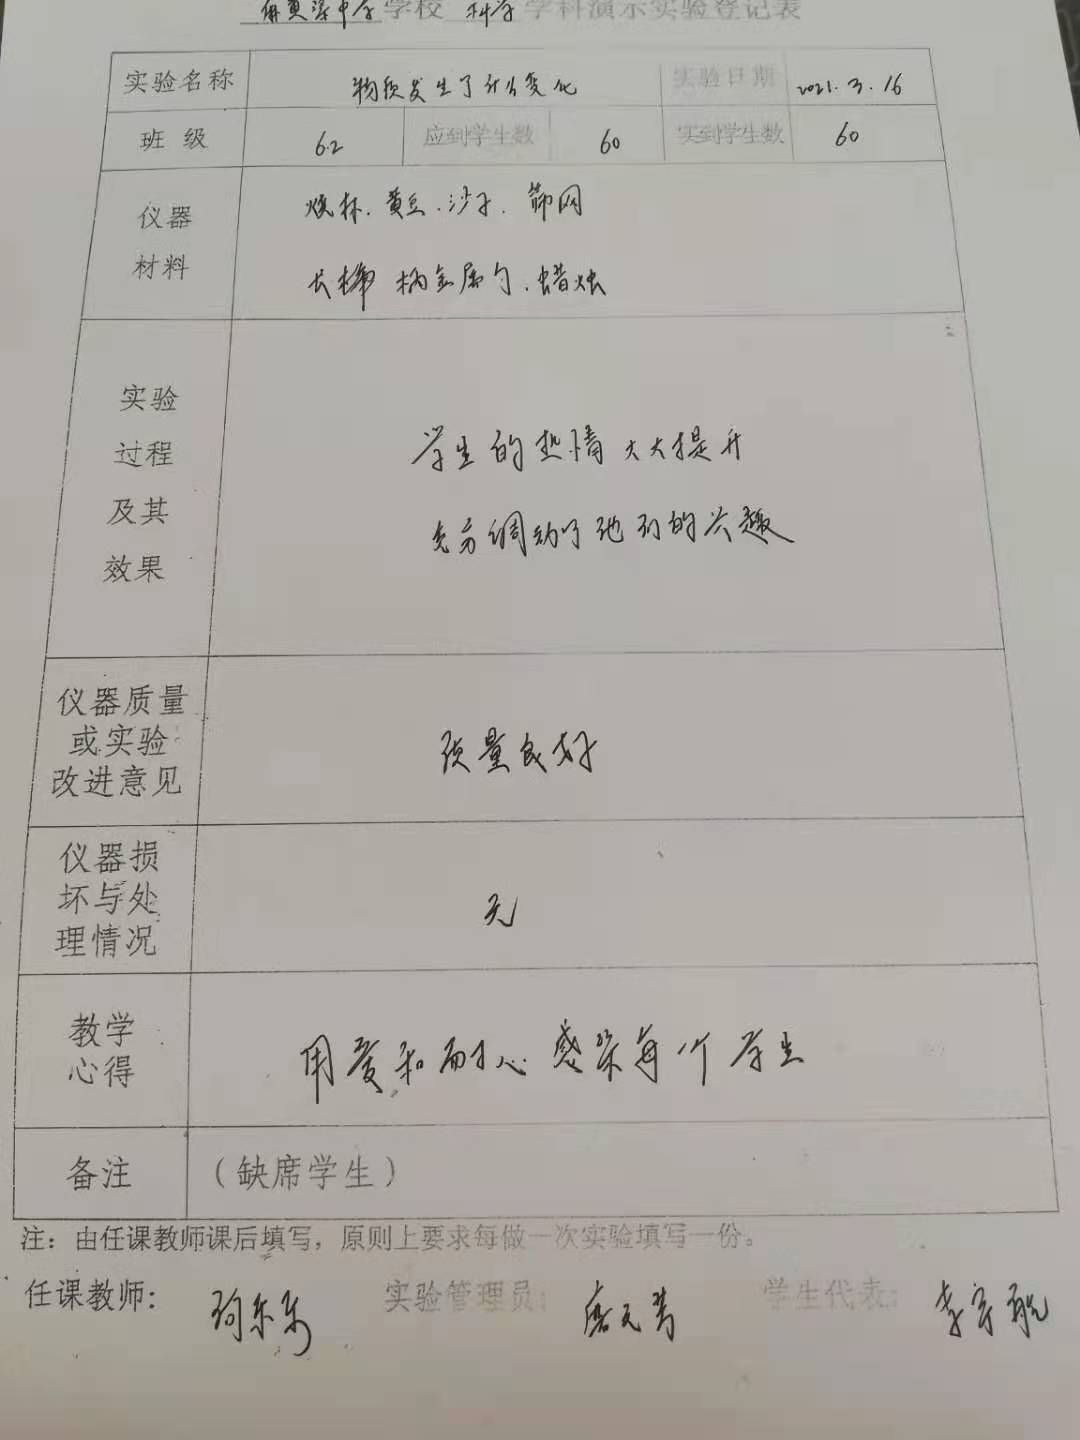 中学学校 科学 学科演示实验登记表
实验名称 物质发生了什么变化 实验日期 2021.3.16
班 级 6.2 应到学生数 60 实到学生数 60
仪器 烧杯.黄豆.沙子.筛网
材料 长 柄金属勺.蜡烛
实验
过程 学生的热情大大提升
及其 充分调动了他们的兴趣
效果
仪器质量
或实验 质量良好
改进意见
仪器损
坏与处 无
理情况
教学
心得 用爱和耐心感染每个学生
备注 (缺席学生)
注：由任课教师课后填写，原则上要求每做一次实验填写一份。
任课教师： 实验管理员： 学生代表： 李